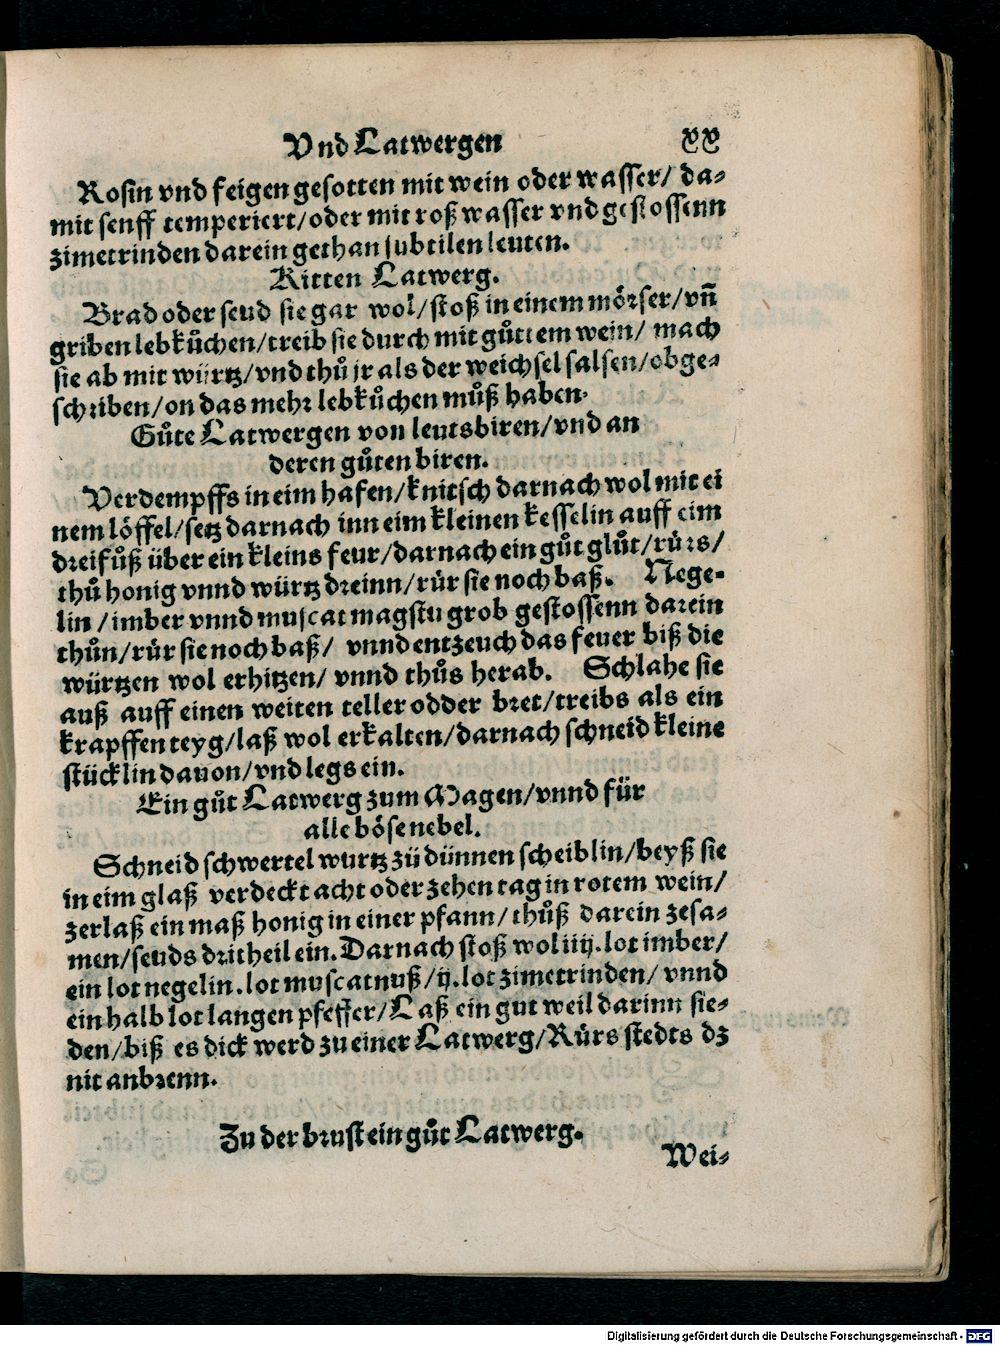 Vnd Latwergen xx
Rosin vnd feigen gesotten mit wein oder wasser/ da-
mit senff temperiert/oder mit roß wasser vnd gestossenn
zimetrinden darein gethan subtilen leuten.
Kitten Latwerg.
Brad oder seud sie gar wol/stoß in einem mörser/vn̄
griben lebkuͦchen/treib sie durch mit guͦttem wein/ mach
sie ab mit würtz/vnd thuͦ jr als der weichsel salsen/obge-
schriben/on das mehr lebkuͦchen muͦß haben.
Guͦte Latwergen von leutsbiren/vnd an
deren guͦten biren.
Verdempffs in eim hafen/knitsch darnach wol mit ei
nem löffel/setz darnach inn eim kleinen kesselin auff eim
dreifuͦß über ein kleins feur/darnach ein guͦt gluͦt/rürs/
thuͦ honig vnnd würtz dreinn/rür sie noch baß. Nege-
lin/imber vnnd muscat magstu grob gestossenn darein
thuͦn/rür sie noch baß/ vnnd entzeuch das feuer biß die
würtzen wol erhitzen/ vnnd thuͦs herab. Schlahe sie
auß auff einen weiten teller odder bret/treibs als ein
krapffen teyg/laß wol erkalten/darnach schneid kleine
stücklin dauon/vnd legs ein.
Ein guͦt Latwerg zum Magen/vnnd für
alle böse nebel.
Schneid schwertel wurtz zü dünnen scheiblin/beyß sie
in eim glaß verdeckt acht oder zehen tag in rotem wein/
zerlaß ein maß honig in einer pfann/thuͦß darein zesa-
men/seuds dritheil ein. Darnach stoß wol iiij. lot imber/
ein lot negelin. lot muscatnuß/ij. lot zimetrinden/ vnnd
ein halb lot langen pfeffer/Laß ein gut weil darinn sie-
den/biß es dick werd zu einer Latwerg/Rürs stedts dz
nit anbrenn.
Zu der brust ein guͦt Latwerg.
Wei-
Digitalisierung gefördert durch die Deutsche Forschungsgemeinschaft - DFG